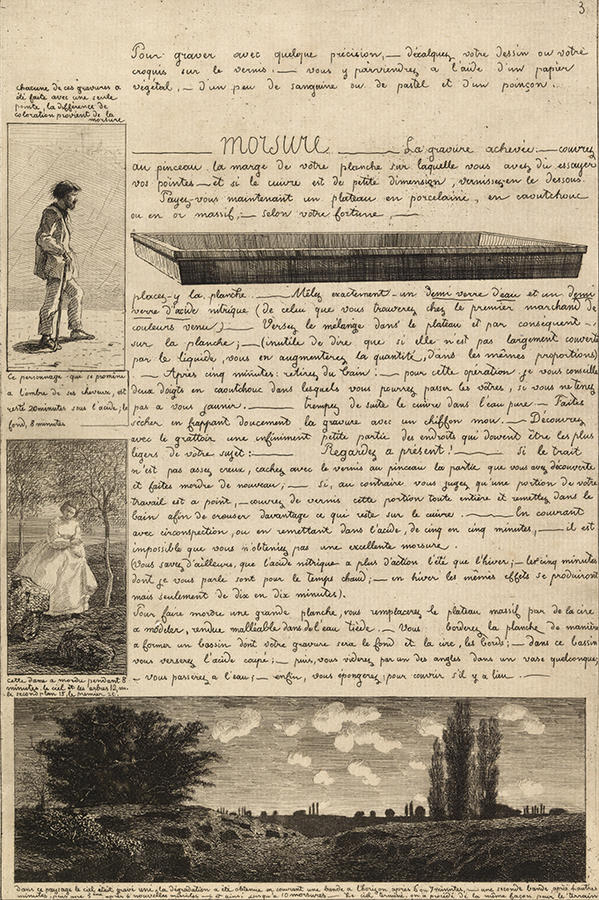 3
Pour graver avec quelque précision, — décalquez votre dessin ou votre
croquis sur le vernis. — vous y parviendrez à l'aide d'un papier
végétal, — d'un peu de sanguine ou de pastel et d'un poinçon.
chacune de ces gravures a
été faite avec une seule
pointe, la différence de
coloration provient de la
morsure
MORSURE — La gravure achevée: — couvrez
au pinceau la marge de votre planche sur laquelle vous avez dû essayer
vos pointes — et si le cuivre est de petite dimension, vernissez-en le dessous.
Payez-vous maintenant un plateau en porcelaine, en caoutchouc
ou en or massif; — selon votre fortune, —
placez-y la planche. — Mêlez exactement un demi verre d'eau et un demi
verre d'acide nitrique (de celui que vous trouverez chez le premier marchand de
couleurs venu) — Versez le mélange dans le plateau et par conséquent —
sur la planche; — (inutile de dire que si elle n'est pas largement couverte
par le liquide, vous en augmenterez la quantité, dans les mêmes proportions)
— Après cinq minutes: retirez du bain! — pour cette opération je vous conseille
deux doigts en caoutchouc dans lesquels vous pourrez passer les vôtres, si vous ne tenez
pas à vous jaunir. — trempez de suite le cuivre dans l'eau pure — Faites
sécher en frappant doucement la gravure avec un chiffon mou. — Découvrez
avec le grattoir une infiniment petite partie des endroits qui doivent être les plus
légers de votre sujet: — Regardez à présent! — Si le trait
n'est pas assez creux, cachez avec le vernis au pinceau la partie que vous avez découverte
et faites mordre de nouveau; — si, au contraire vous jugez qu'une portion de votre
travail est à point, — couvrez de vernis cette portion toute entière et remettez dans le
bain afin de creuser davantage ce qui reste sur le cuivre. — En couvrant
avec circonspection, ou en remettant dans l'acide, de cinq en cinq minutes, — il est
impossible que vous n'obteniez pas une excellente morsure.
(Vous savez d'ailleurs, que l'acide nitrique a plus d'action l'été que l'hiver; — les cinq minutes
dont je vous parle sont pour le temps chaud; — en hiver les mêmes effets se produiront
mais seulement de dix en dix minutes).
Pour faire mordre une grande planche, vous remplacerez le plateau massif par de la cire
à modeler, rendue malléable dans de l'eau tiède. — Vous borderez la planche de manière
à former un bassin dont votre gravure sera le fond et la cire, les bords; — dans ce bassin
vous verserez l'acide coupé; — puis, vous viderez par un des angles dans un vase quelconque,
— vous passerez à l'eau; — enfin, vous épongerez, pour couvrir s'il y a lieu. —
Ce personnage qui se promène
à l'ombre de ses cheveux, est
resté 20 minutes sous l'acide; le
fond, 8 minutes
Cette dame a mordu pendant 8
minutes. le ciel et les arbres 12 m.
le second plan 15, le premier 20.
dans ce paysage le ciel étant gravé uni, la dégradation a été obtenue en couvrant une bande à l'horizon après 6 ou 7 minutes, — une seconde bande après d'autres
minutes, puis une 3ème après de nouvelles minutes — et ainsi jusqu'à 10 morsures — Le ciel terminé, on a procédé de la même façon pour le terrain